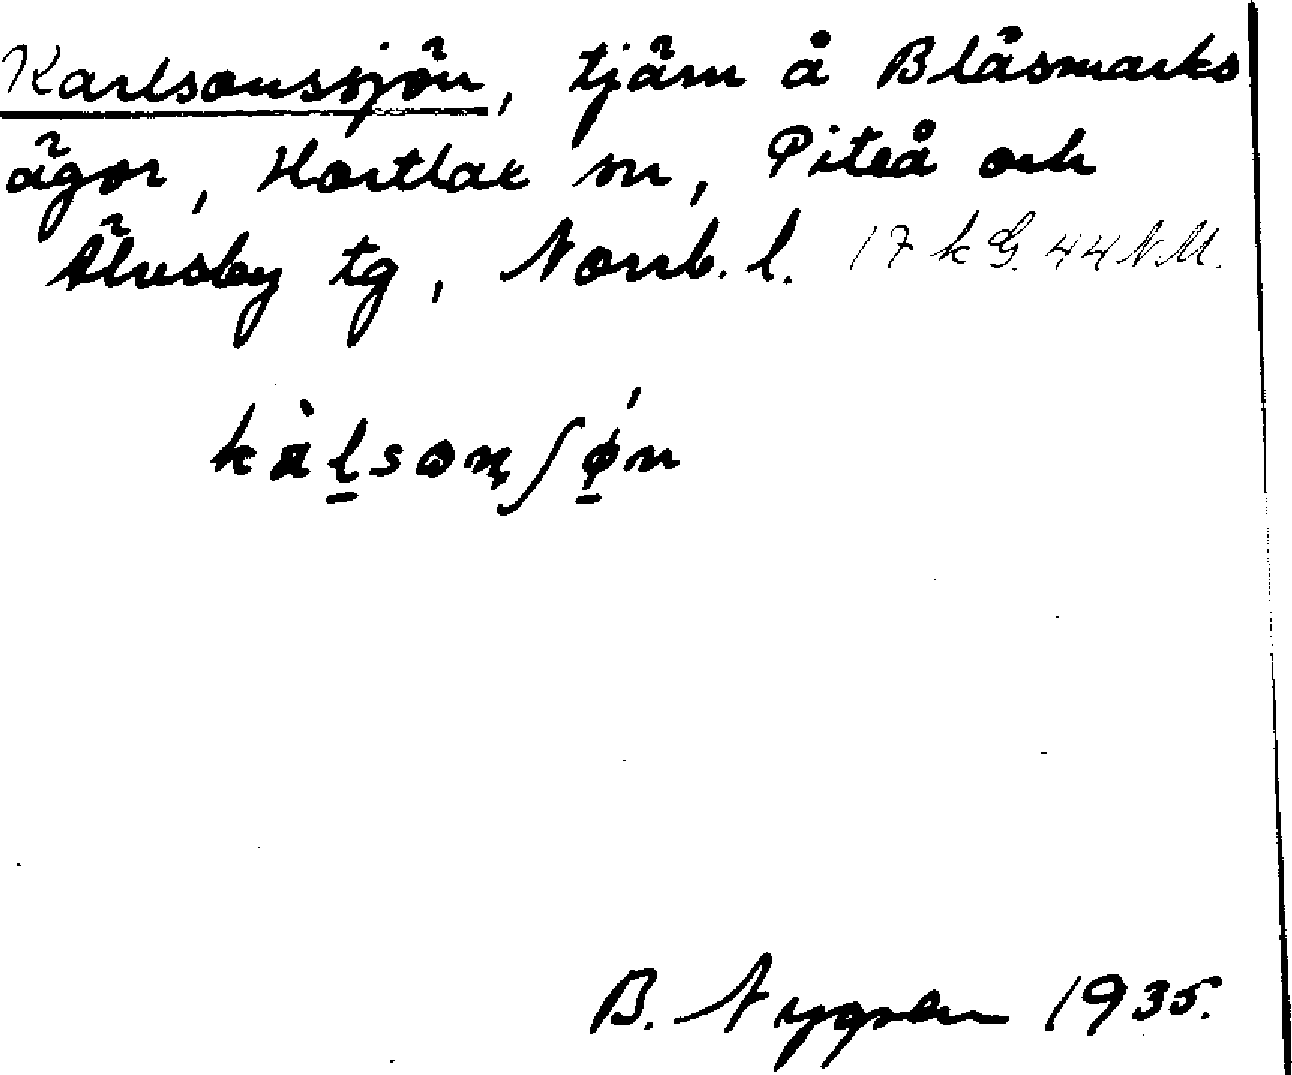 Karlsonssjön, tjärn å Blåsmarks
ägor, Hortlax sn, Piteå och
Älvsby tg, Norrb. l. 17 k G. 44 N.M.
kàl̠sonʃǿ̠n
B. Nygren 1935.